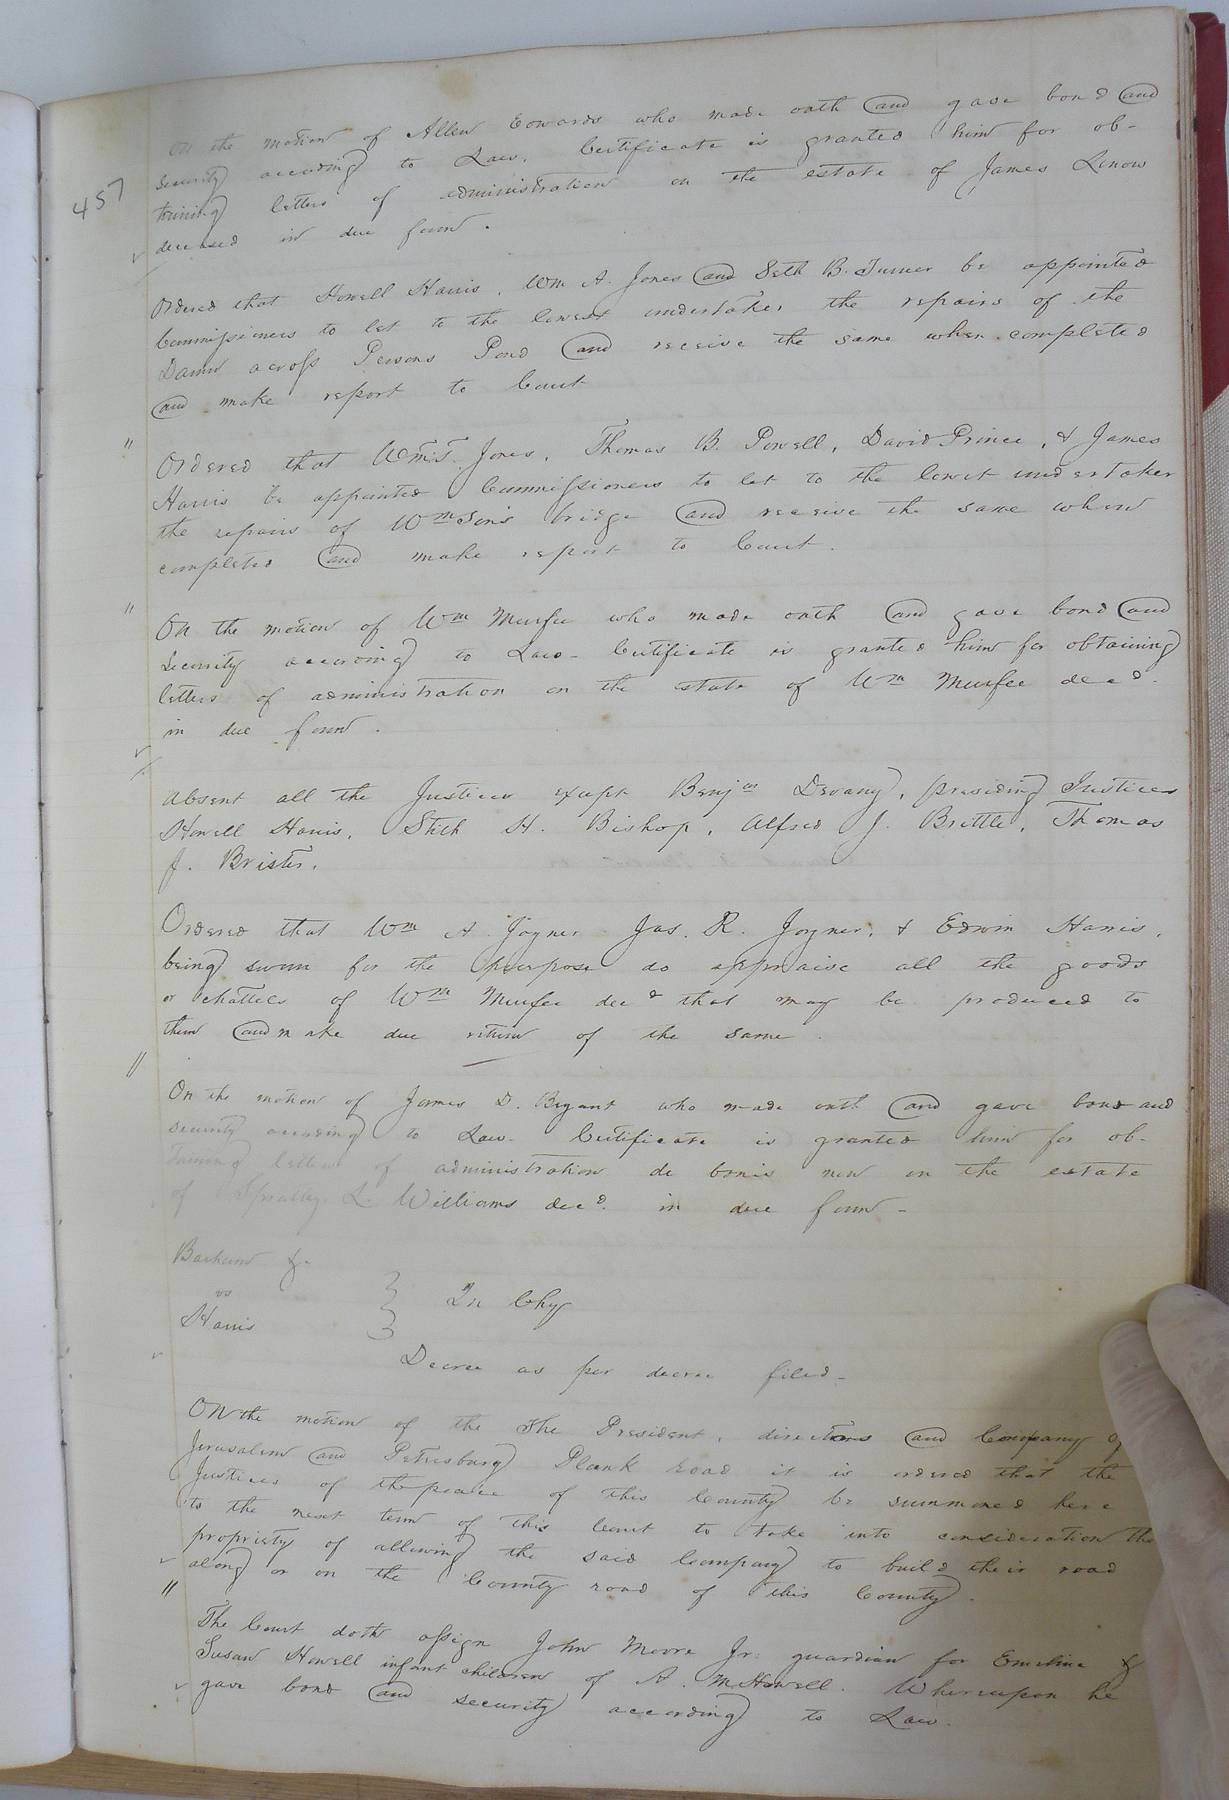 457
On the motion of Allen Edwards who made oath and gave bond and
security according to Law. Certificate is granted him for ob-
taining letters of administration on the estate of James Lenow
deceased in due form.
Ordered that Howell Harris, Wm A. Jones and Seth B. Turner be appointed
Commissioners to let to the lowest undertaker the repairs of the
Damn across Persons Pond and receive the same when completed
and make report to Court
Ordered that Wm. T. Jones, Thomas B. Powell, David Prince, & James
Harris be appointed Commissioners to let to the lowest undertaker
the repairs of Wmson's bridge and receive the same when
completed and make report to Court.
On the motion of Wm Murfee who made oath and gave bond and
security according to Law - Certificate is granted him for obtaining
letters of administration on the estate of Wm Murfee decd.
in due form.
Absent all the Justices except Benjn Devany, presiding Justices
Howell Harris, Stith H. Bishop, Alfred J. Brittle, Thomas
J. Brister.
Ordered that Wm A. Joyner Jas. R. Joyner, & Edwin Harris,
being sworn for the purpose do appraise all the goods
or chattels of Wm Murfee decd that may be produced to
them and make due return of the same.
On the motion of James D. Bryant who made oath and gave bond and
security according to Law - Certificate is granted him for ob-
taining letters of administration de bonis non on the estate
of L. Williams decd. in due form -
Barham &c
vs } In Chy
Harris
Decree as per decree filed -
On the motion of the The President, directors and Company of
Jerusalem and Petersburg Plank road it is ordered that the
Justices of the peace of this County be summoned here
to the next term of this Court to take into consideration the
propriety of allowing the said Company to build their road
along or on the County road of this County.
The Court doth assign John Moore Jr. guardian for Emeline &
Susan Howell infant children of A. M. Howell. Whereupon he
gave bond and security according to Law.